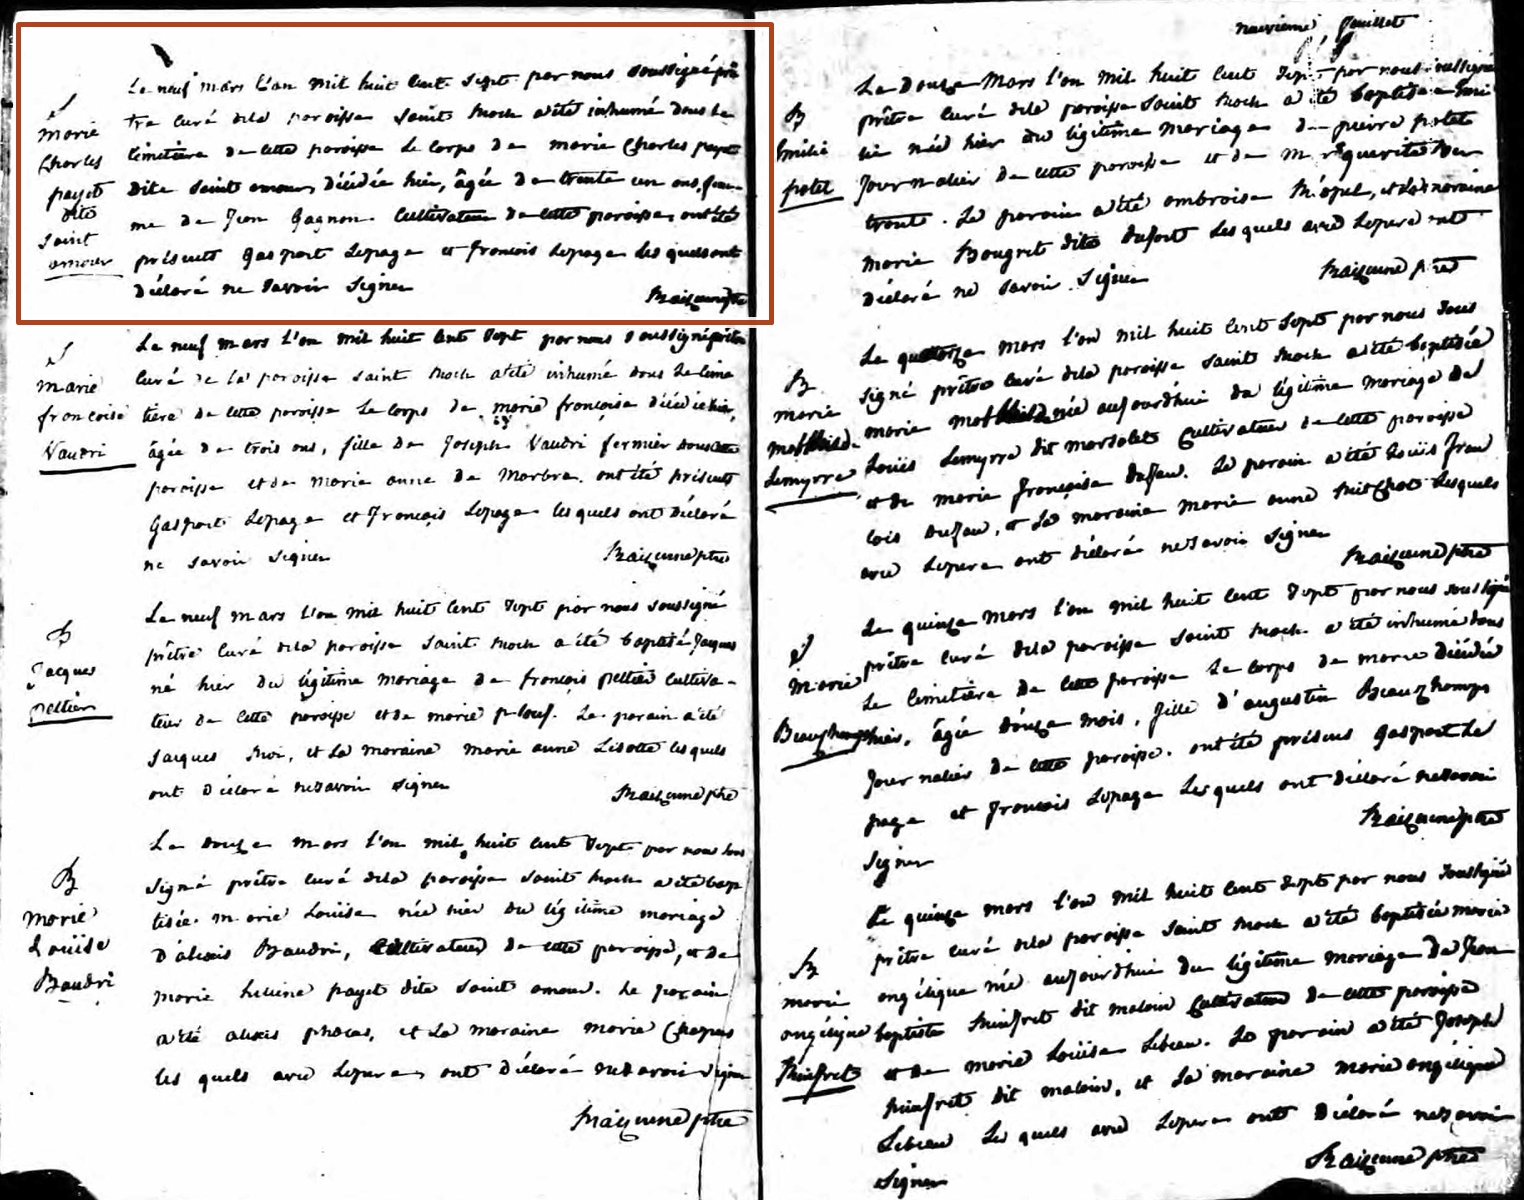 S
marie
Charles
payet
dite
saint
amour
Le neuf mars l'an mil huit cent sept par nous soussigné prê
tre curé dela paroisse saint Roch a été inhumé dans le
cimetière de cette paroisse le corps de marie Charles payet
dite saint amour, décédée hier, âgée de trente un ans, fem-
me de Jean Gagnon Cultivateur de cette paroisse, ont été
présents Gaspart Lepage et francois Lepage les quels ont
déclaré ne savoir signer
Raizenne ptre
S
marie
francoise
Vaudri
Le neuf mars l'an mil huit cent sept par nous soussigné prêtre
curé de la paroisse saint Roch a été inhumé dans le cime
tière de cette paroisse le corps de marie françoise décédée hier,
âgée de trois ans, fille de Joseph Vaudri fermier dans cette
paroisse et de marie anne de ont été présents
Gaspart Lepage et François Lepage les quels ont déclaré
ne savoir signer
Raizenne ptre
B
Jacques
peltier
Le neuf mars l'an mil huit cent sept par nous soussigné
prêtre curé dela paroisse saint Roch a été baptisé Jacques
né hier du légitime mariage de françois peltier cultiva-
teur de cette paroisse et de marie plouf. Le parain a été
Jacques Roi, et la maraine marie anne Lisotte les quels
ont déclaré ne savoir signer
Raizenne ptre
B
marie
Louise
Baudri
Le douze mars l'an mil huit cent sept par nous sous
signé prêtre curé dela paroisse saint Roch a été bap
tisée marie Louise née hier du légitime mariage
d'alexis Baudri, Cultivateur de cette paroisse, et de
marie heleine payet dite saint amour. Le parain
a été alexis et la maraine marie
les quels avec le pere, ont déclaré ne savoir signer
Raizenne ptre
neuvieme feuillet
B
Emilie
potel
Le Douze Mars l'an mil huit cent sept par nous soussigné
prêtre curé dela paroisse saint Roch a été baptisée Emi
lie née hier du légitime mariage de pierre potel
Journalier de cette paroisse et de marguerite
Le parain a été ambroise et la maraine
marie Bougret dite dufort les quels avec le pere ont
déclaré ne savoir signer
Raizenne ptre
B
marie
Lemyrre
Le quatorze mars l'an mil huit cent sept par nous sous
signé prêtre curé dela paroisse saint Roch a été baptisée
marie née aujourdhui du légitime mariage de
Louis Lemyrre dit marsolet Cultivateur de cette paroisse
et de marie françoise dufau. Le parain a été Louis fran
cois dufau, et la maraine marie anne lesquels
avec le pere ont déclaré ne savoir signer
Raizenne ptre
S
marie
Beauchamps
Le quinze mars l'an mil huit cent sept par nous soussigné
prêtre curé dela paroisse saint Roch a été inhumé dans
le cimetière de cette paroisse le corps de marie décédée
hier, âgée douze mois, fille d'augustin Beauchamps
Journalier de cette paroisse. ont été présens Gaspart Le
page et francois Lepage les quels ont déclaré ne savoir
signer
Raizenne ptre
B
marie
angélique
Rinfret
Le quinze mars l'an mil huit cent sept par nous soussigné
prêtre curé dela paroisse saint Roch a été baptisée marie
angélique née aujourd'hui du légitime mariage de Jean
baptiste Rinfret dit maloin Cultivateur de cette paroisse
et de marie Louise Lebeau. Le parain a été Joseph
Rinfret dit maloin, et la maraine marie angélique
Lebeau les quels avec le pere ont déclaré ne savoir
signer
Raizenne ptre